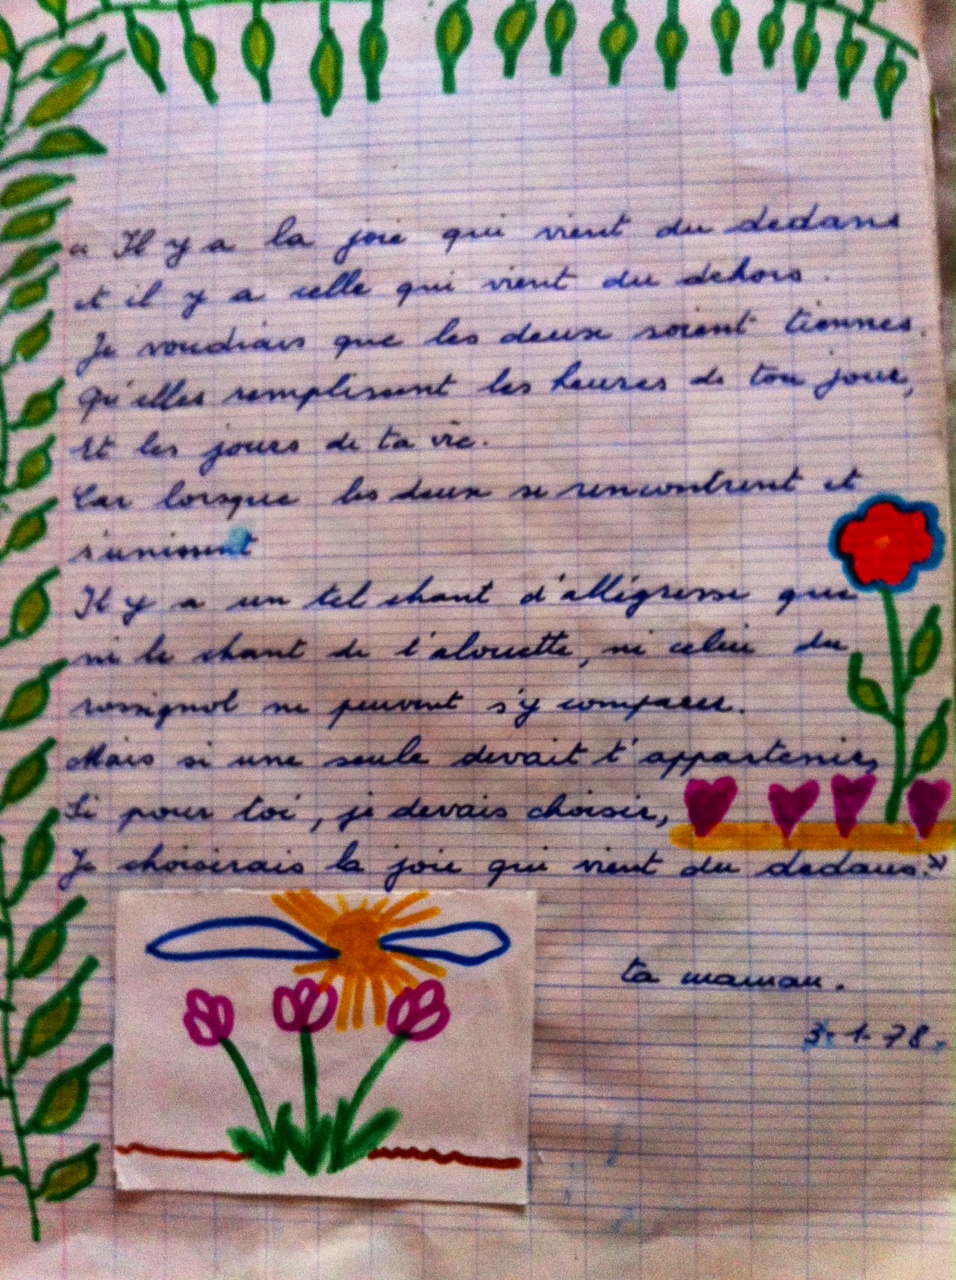 " Il y a la joie qui vient du dedans
et il y a celle qui vient du dehors.
Je voudrais que les deux soient tiennes.
Qu'elles remplissent les heures de ton jour,
Et les jours de ta vie.
Car lorsque les deux se rencontrent et
s'unissent
Il y a un tel chant d'allégresse que
ni le chant de l'alouette, ni celui du
rossignol ne peuvent s'y comparer.
Mais si une seule devait t'appartenir,
Si pour toi, je devais choisir,
Je choisirais la joie qui vient du dedans."
ta maman.
3-1-78.